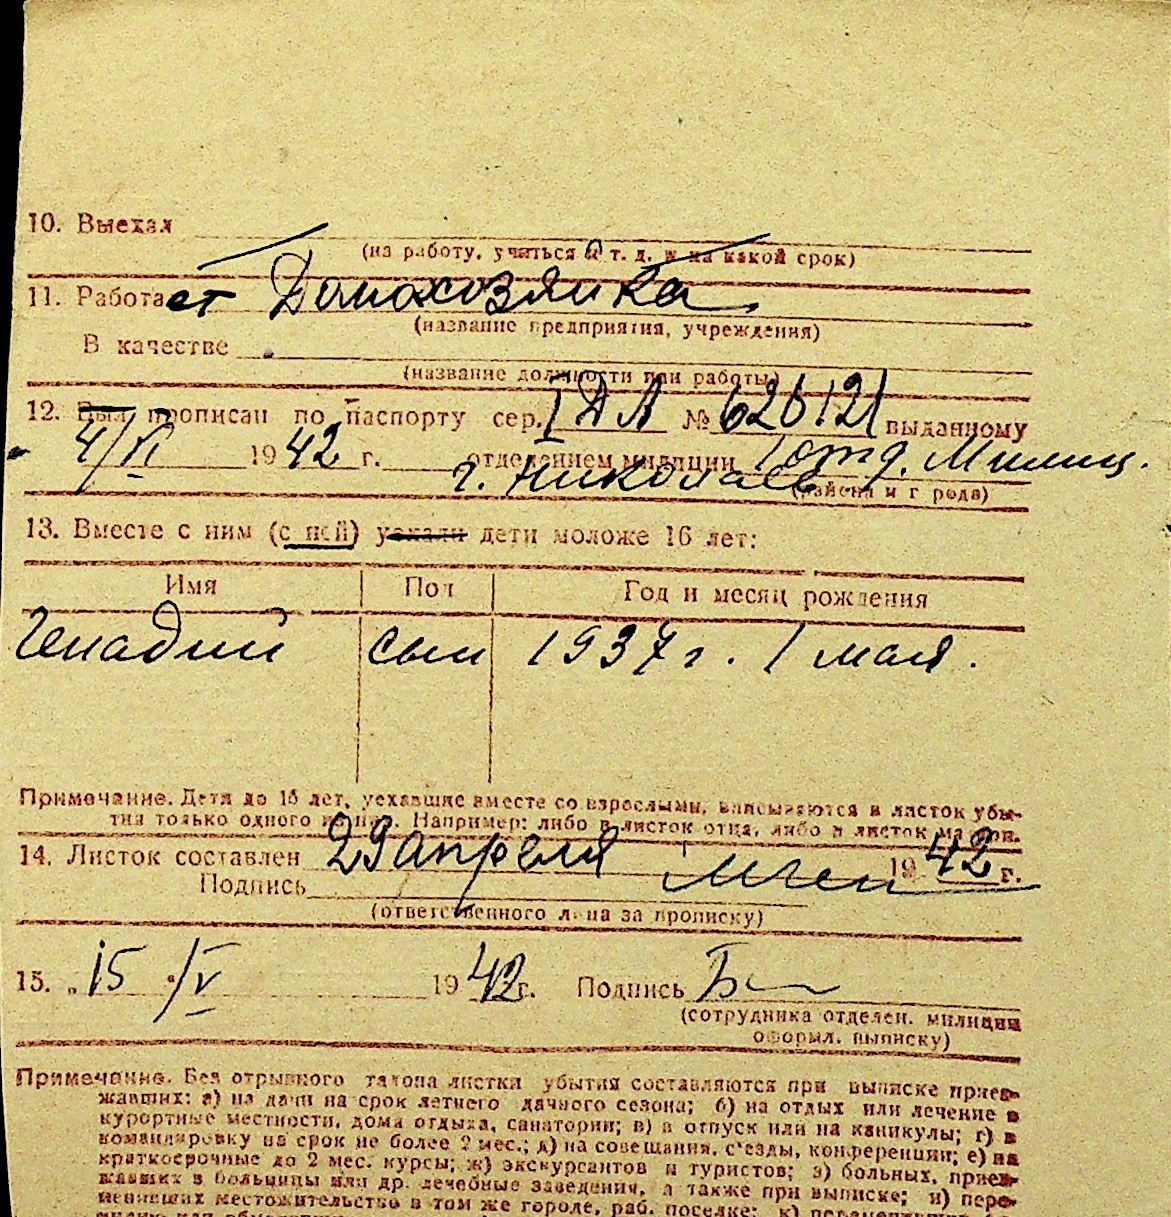 10. Выехал
(на работу, учиться и т. д. и на какой срок)
11. Работает Домохозяйка.
(название предприятия, учреждения)
В качестве
(название должности или работы)
12. Был прописан по паспорту сер. I ДЛ № 626121 выданному
4/VI 1942 г. отделением милиции 1 отд. Милиц.
г. Николаев (района и города)
13. Вместе с ним (с ней) уехали дети моложе 16 лет:
Имя Пол Год и месяц рождения
Генадий сын 1937 г. 1 мая.
Примечание. Дети до 16 лет, уехавшие вместе со взрослыми, вписываются в листок убы-
тия только одного из них. Например: либо в листок отца, либо в листок матери.
14. Листок составлен 29 апреля 1942 г.
Подпись
(ответственного лица за прописку)
15. „15 “/V 1942 г. Подпись
(сотрудника отделен. милиции
оформл. выписку)
Примечание. Без отрывного талона листки убытия составляются при выписке приез-
жавших: а) на дачи на срок летнего дачного сезона; б) на отдых или лечение в
курортные местности, дома отдыха, санатории; в) в отпуск или на каникулы; г) в
командировку на срок не более 2 мес.; д) на совещания, с'езды, конференции; е) на
краткосрочные до 2 мес. курсы; ж) экскурсантов и туристов; з) больных, приез-
жавших в больницы или др. лечебные заведения, а также при выписке; и) пере-
менивших местожительство в том же городе, раб. поселке; к)